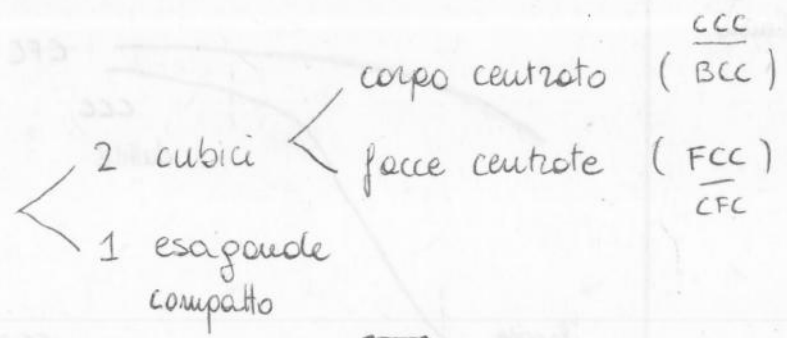 CCC
corpo centrato ( BCC )
2 cubici
facce centrate ( FCC )
CFC
1 esagonale
compatto